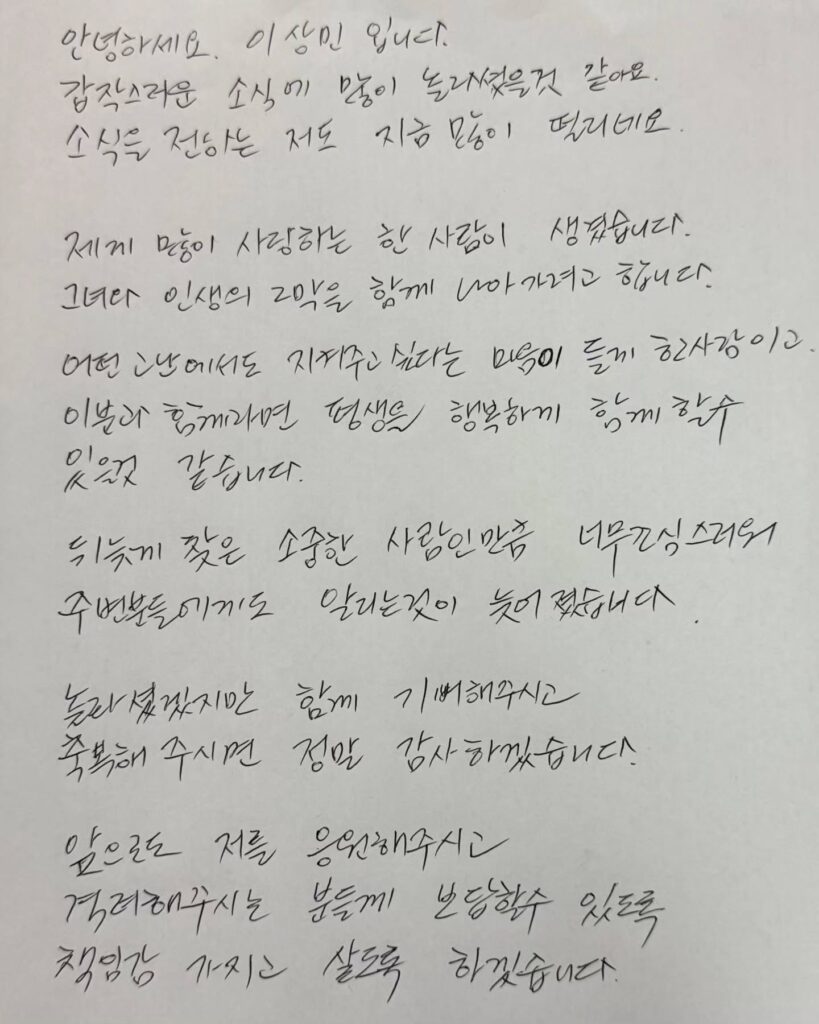 안녕하세요. 이상민 입니다.
갑작스라운 소식에 많이 놀라셨을것 같아요.
소식을 전하는 저도 지금 많이 떨리네요.
제게 많이 사랑하는 한 사람이 생겼습니다.
그녀와 인생의 2막을 함께 나아가려고 합니다.
어떤 고난에서도 지켜주고 싶다는 마음이 들게 한사람이고.
이분과 함께라면 평생을 행복하게 함께 할수
있을것 같습니다.
뒤늦게 찾은 소중한 사람인만큼 너무조심스러워
주변분들에게도 알리는것이 늦어졌습니다.
놀라셨겠지만 함께 기뻐해주시고
축복해 주시면 정말 감사하겠습니다.
앞으로도 저를 응원해주시고
격려해주시는 분들께 보답할수 있도록
책임감 가지고 살도록 하겠습니다.